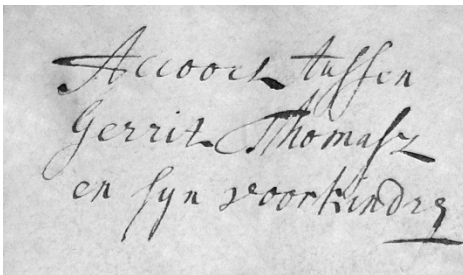 Accoort tussen
Gerrit Thomasz
en syn voorkindrẽ